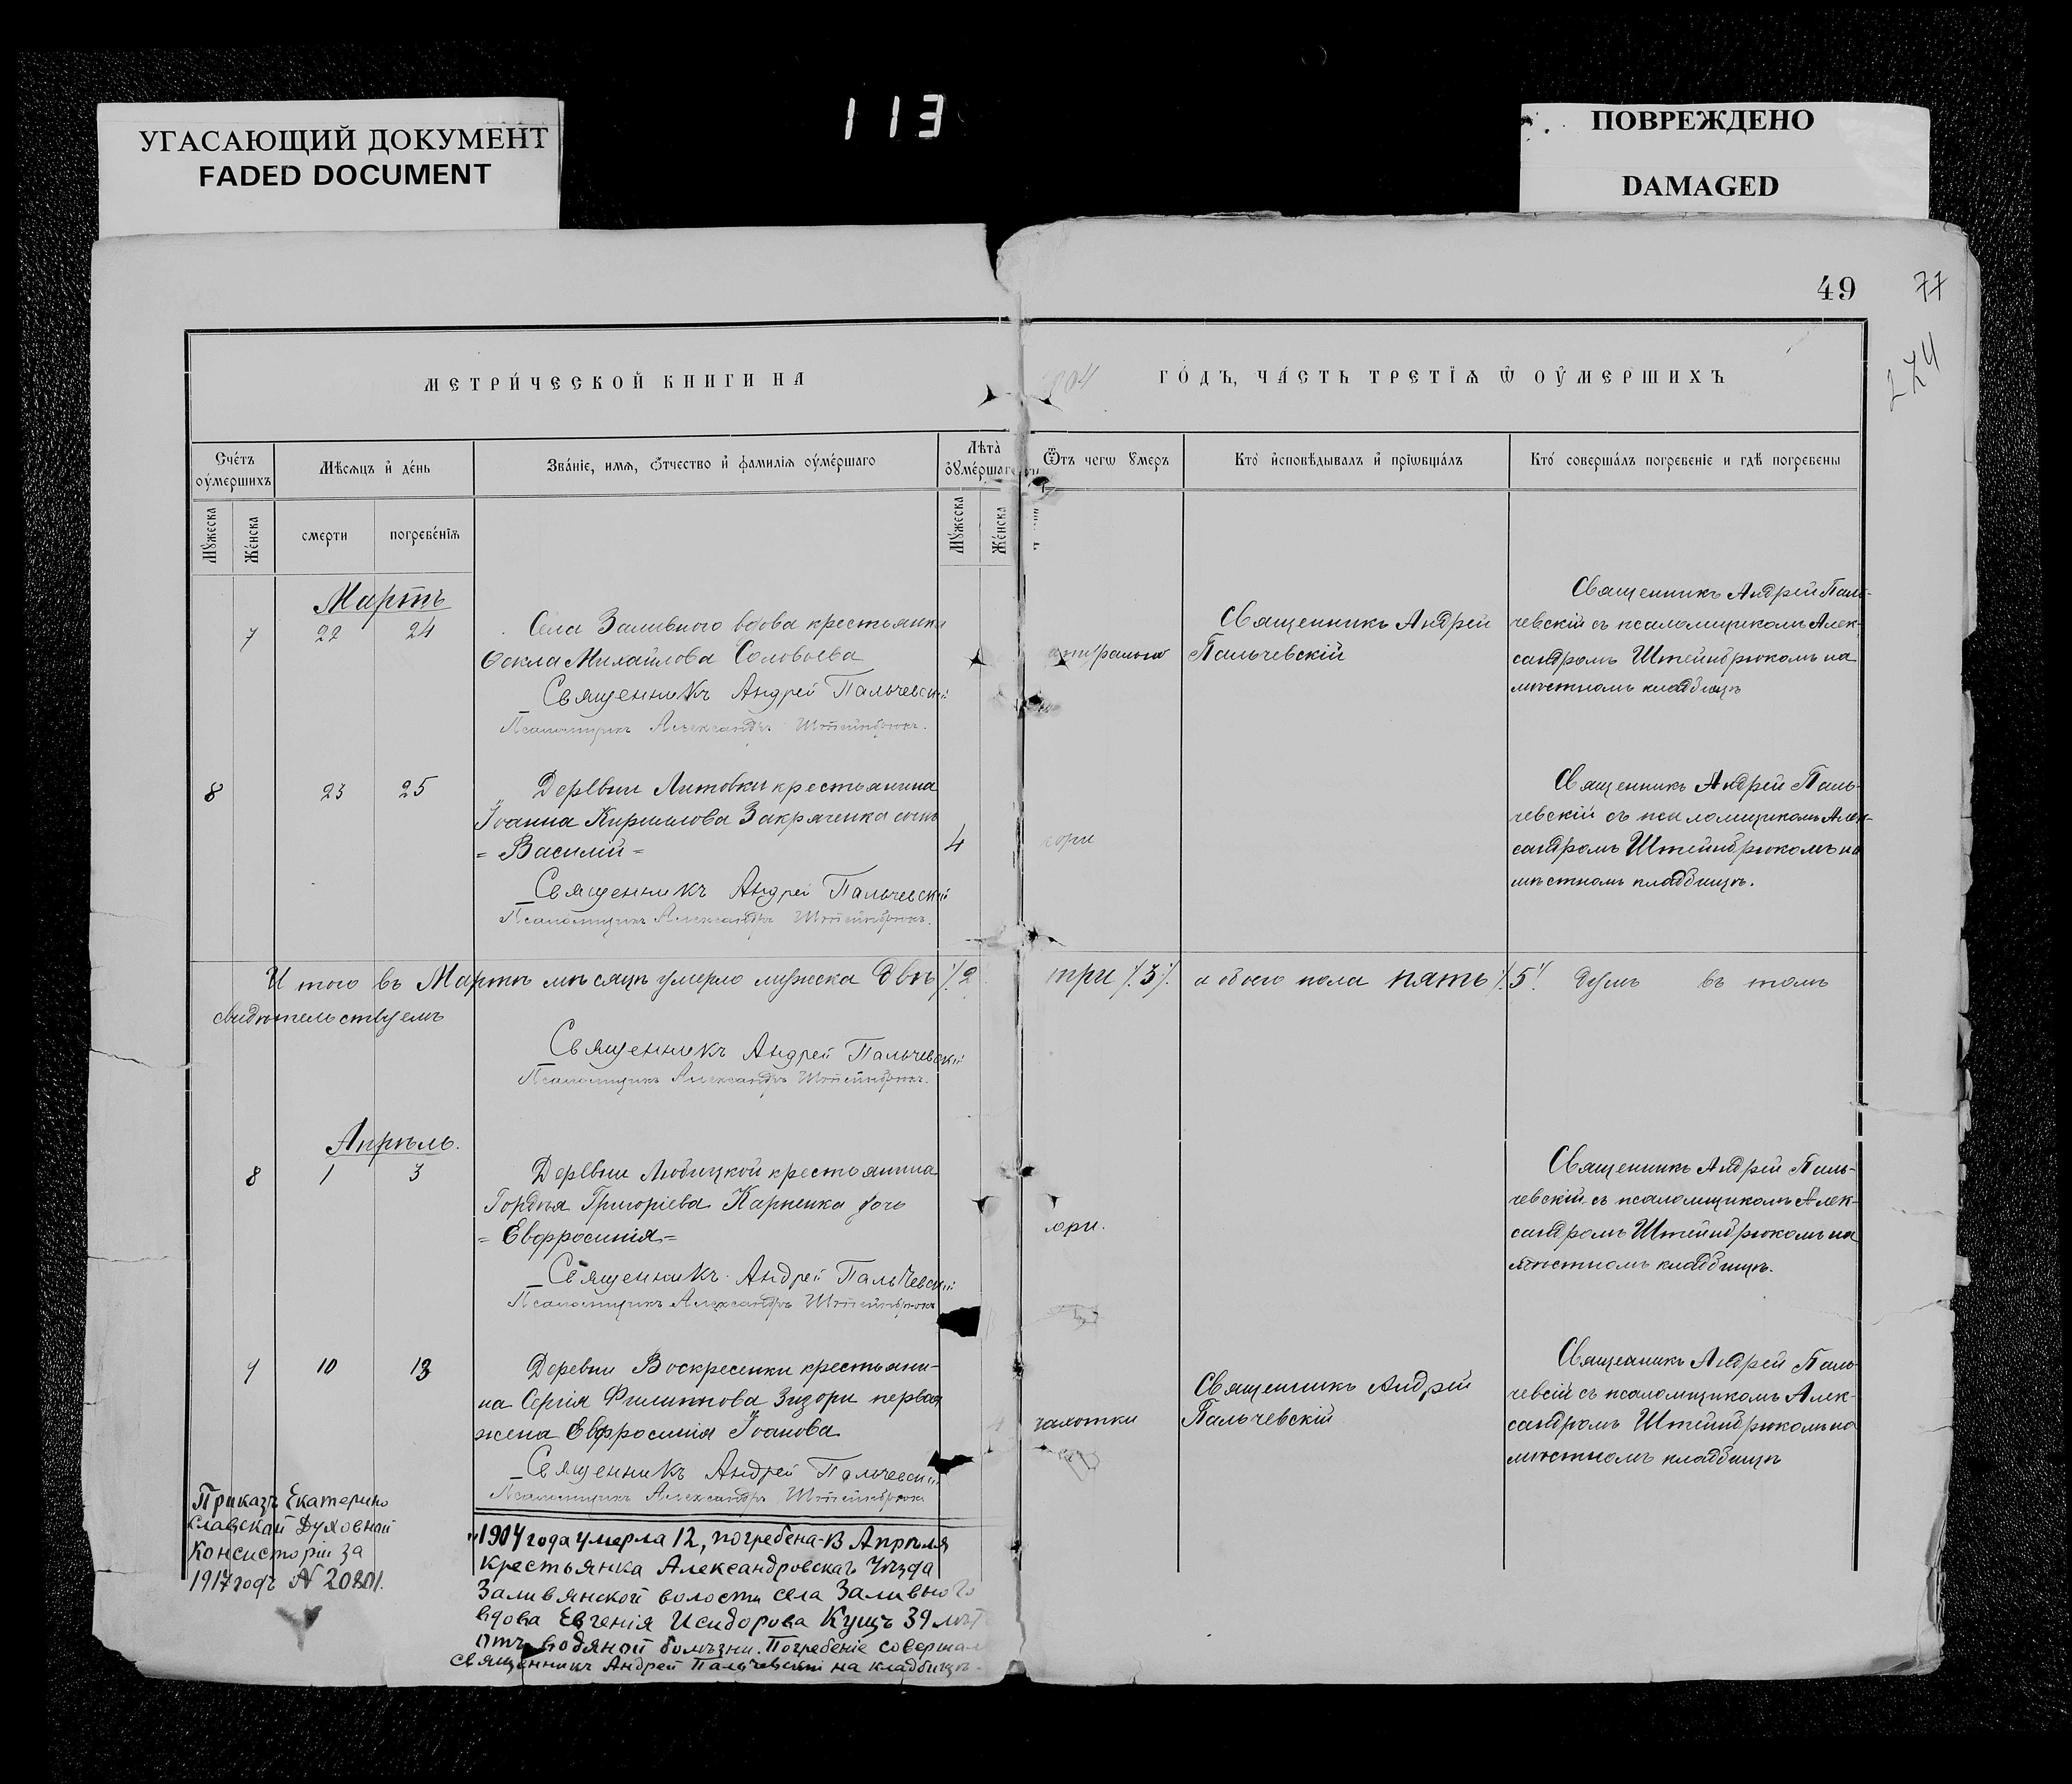 113
УГАСАЮЩИЙ ДОКУМЕНТ
FADED DOCUMENT
ПОВРЕЖДЕНО
DAMAGED
49
77
274
МЕТРИ́ЧЕСКОЙ КНИГИ НА
ГО́ДЪ, ЧА́СТЬ ТРЕТЇѦ Ѿ ОУ҆МЕРШИХЪ
Счетъ оу҆мершихъ
Мѣсѧцъ и҆ де́нь
Зва́нїе, имѧ, ѻ҆тчество и҆ фамилїѧ оу҆ме́ршаго
Лѣта̀ оу҆ме́ршаго
Ѿъ чегѡ оу҆меръ
Кто̀ и҆сповѣ́дывалъ и҆ прїѡбща́лъ
Кто́ соверша́лъ погребе́нїе и гдѣ̀ погребены
Мꙋ́жеска
Же́нска
смерти
погребе́нїѧ
Мꙋ́жеска
Же́нска
Мартъ
7 22 24
Села Заливного вдова крестьянка
Ѳекла Михайлова Соловьева
Священникъ Андрей Пальчевскій
Псаломщикъ Александръ Штейнбрюкъ.
Священникъ Андрей
Пальчевскій
Священникъ Андрей Паль-
чевскій съ псаломщикомъ Алек-
сандромъ Штейнбрюкомъ на
мѣстномъ кладбищѣ
8 23 25
Деревни Литовки крестьянина
Іоанна Кириллова Закряченка сынъ
= Василій =
4
кори
Священникъ Андрей Пальчевскій
Псаломщикъ Александръ Штейнбрюкъ.
Священникъ Андрей Паль-
чевскій съ псаломщикомъ Алек-
сандромъ Штейнбрюкомъ на
мѣстномъ кладбищѣ.
Итого въ Мартѣ мѣсяцѣ умерло мужеска двѣ /.2 три /.3/. а обоего пола пять /.5/. душъ въ томъ
свидѣтельствуемъ
Священникъ Андрей Пальчевскій
Псаломщикъ Александръ Штейнбрюкъ.
Апрѣль.
8 1 3
Деревни Любицкой крестьянина
Гордѣя Григоріева Карпенка дочь
= Евфросинія =
Священникъ Андрей Пальчевскій
Псаломщикъ Александръ Штейнбрюкъ
Священникъ Андрей Паль-
чевскій съ псаломщикомъ Алек-
сандромъ Штейнбрюкомъ на
мѣстномъ кладбищѣ.
9 10 13
Деревни Воскресенки крестьяни-
на Сергія Филиппова Зизори первая
жена Евфросинія Іоанова
чахотки
Священникъ Андрей Пальчевскій
Псаломщикъ Александръ Штейнбрюкъ
Священникъ Андрей
Пальчевскій
Священникъ Андрей Паль-
чевсій съ псаломщикомъ Алек-
сандромъ Штейнбрюкомъ на
мѣстномъ кладбищѣ
Приказъ Екатерино
славской Духовной
Консисторіи за
1917 годъ № 20801.
"1904 года умерла 12, погребена-13 Апрѣля
крестьянка Александровскаго Уѣзда
Заливянской волости села Заливного
вдова Евгенія Исидорова Кущъ 39 лѣтъ
отъ водяной болѣзни. Погребеніе совершал
священникъ Андрей Пальчевскій на кладбищѣ.